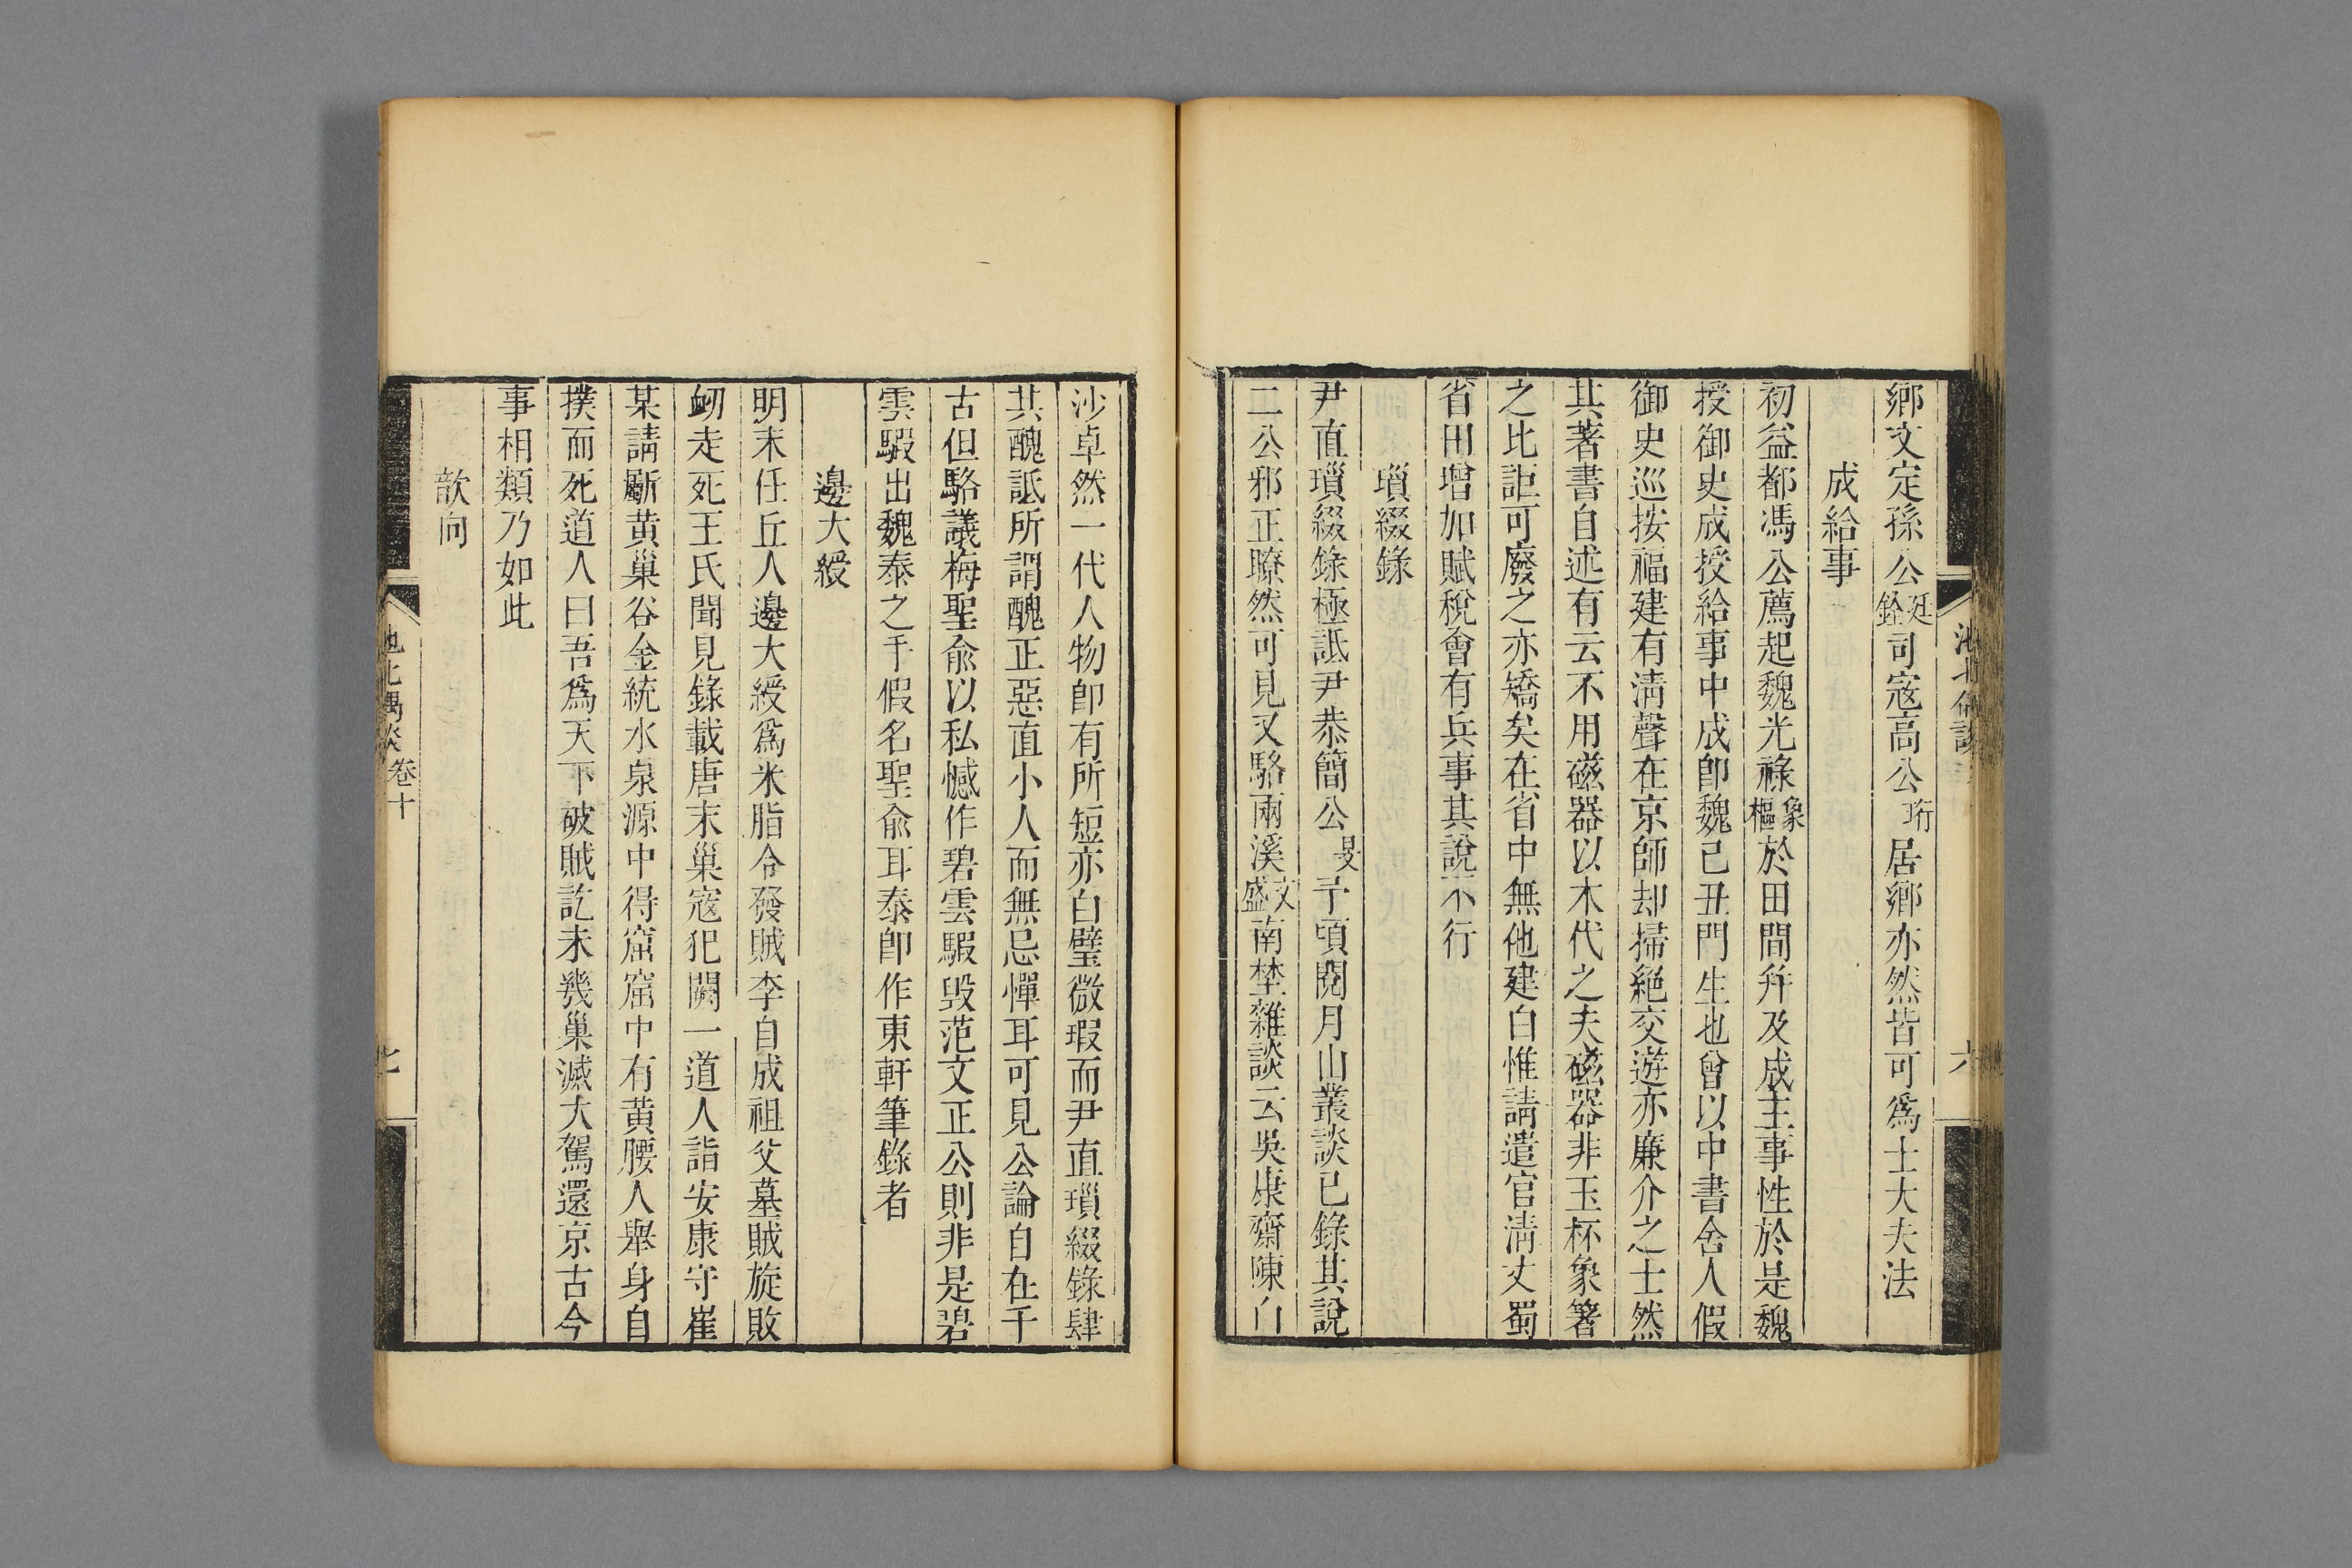 鄉文定孫公廷銓司寇高公珩居鄉亦然皆可爲士大夫法
成給事
初益都馮公薦起魏光祿象樞於田間幷及成主事性於是魏
授御史成授給事中成卽魏己丑門生也曾以中書舍人假
御史巡按福建有淸聲在京師却掃絕交遊亦廉介之士然
其著書自述有云不用磁器以木代之夫磁器非玉杯象箸
之比詎可廢之亦矯矣在省中無他建白惟請遣官淸丈蜀
省田增加賦稅會有兵事其說不行
瑣綴錄
尹直瑣綴錄極詆尹恭簡公旻予頃閱月山叢談已錄其說
二公邪正瞭然可見又駱兩溪文盛南埜雜談云吳康齋陳白
池北偶談
六
沙卓然一代人物卽有所短亦白璧微瑕而尹直瑣綴錄肆
其醜詆所謂醜正惡直小人而無忌憚耳可見公論自在千
古但駱議梅聖兪以私憾作碧雲騢毀范文正公則非是碧
雲騢出魏泰之手假名聖兪耳泰卽作東軒筆錄者
邊大綬
明末任丘人邊大綬爲米脂令發賊李自成祖父墓賊旋敗
衂走死王氏聞見錄載唐末巢寇犯闕一道人詣安康守崔
某請斸黃巢谷金統水泉源中得窟窟中有黃腰人舉身自
撲而死道人曰吾爲天下破賊訖未幾巢滅大駕還京古今
事相類乃如此
歆向
池北偶談 卷十
七